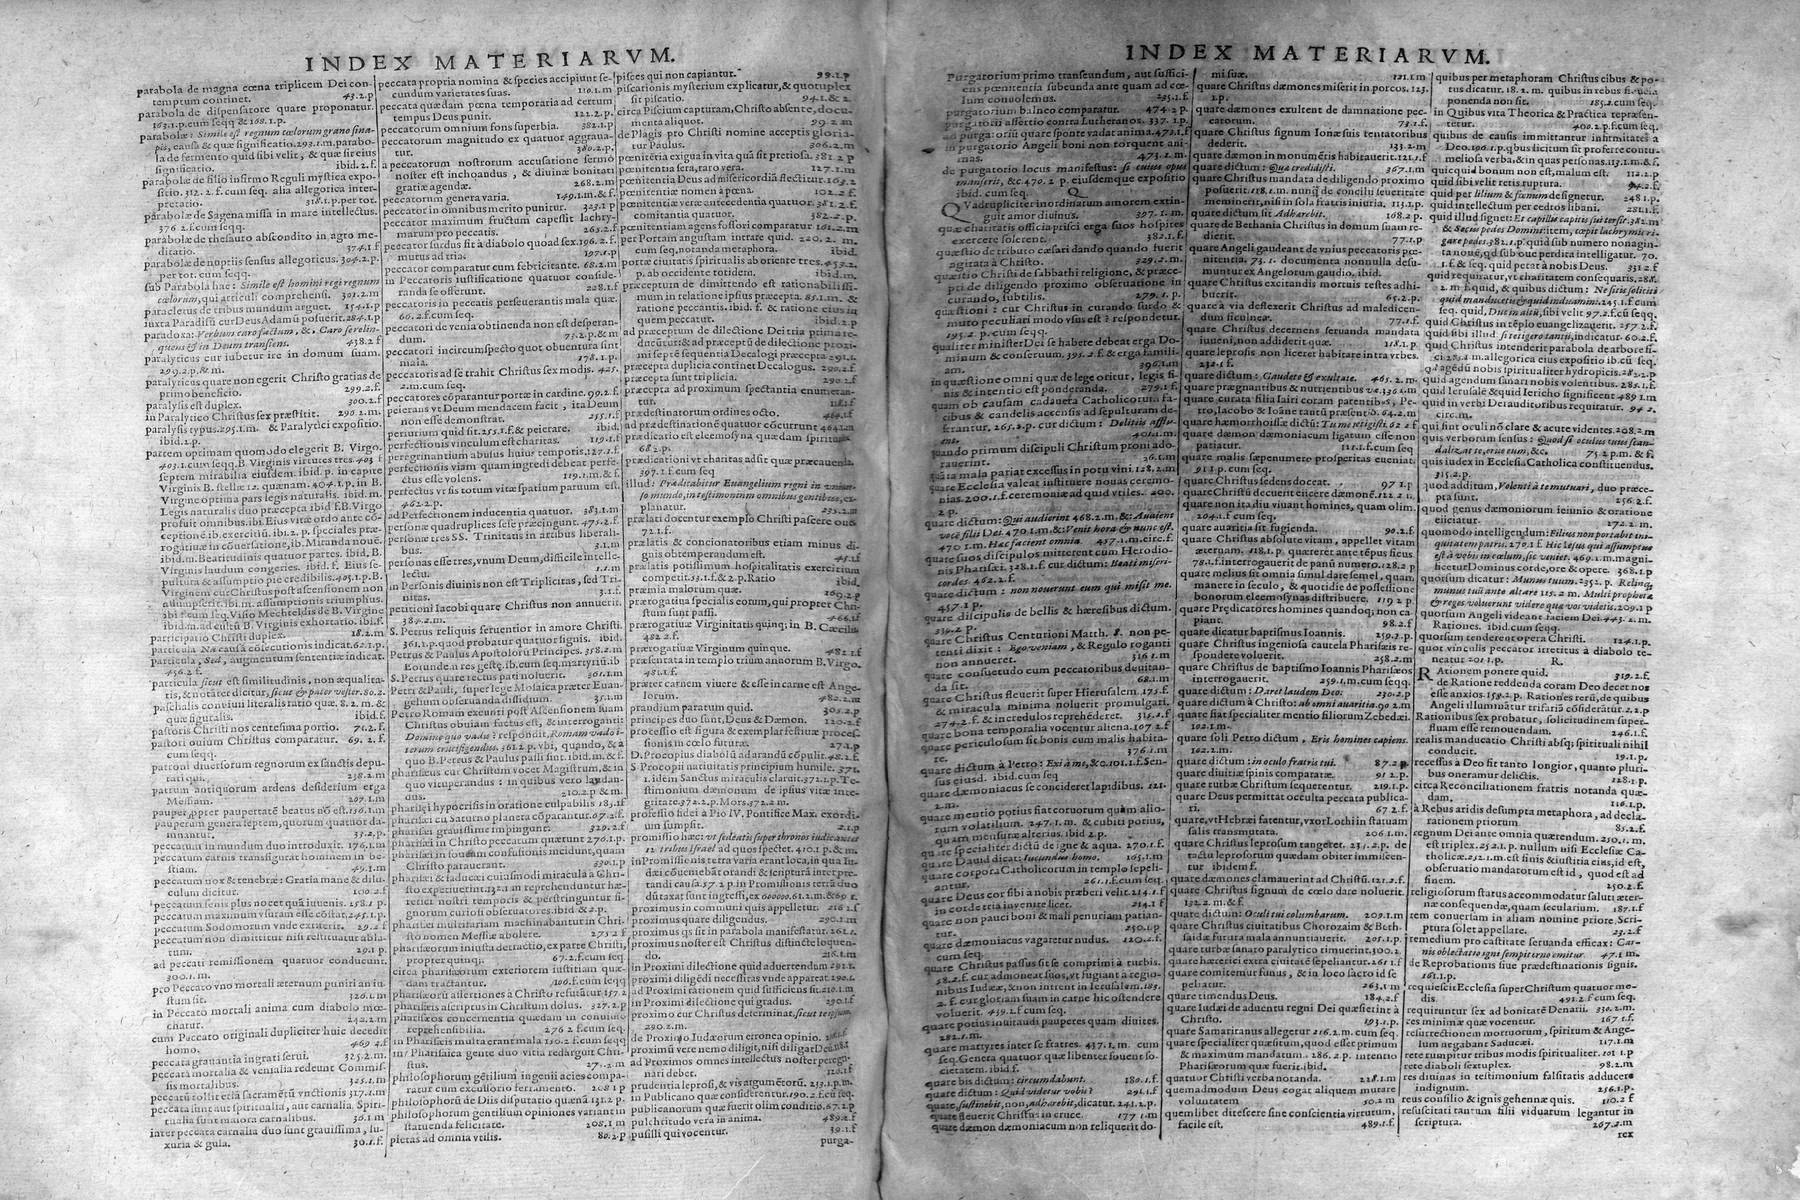 INDEX MATERIARVM.
parabola de magna cœna triplicem Dei con-
temptum continet. 43.2.p
parabola de dispensatore quare proponatur.
163.1.p.cum seqq & 168.1.p.
parabolæ: Simile est regnum cœlorum grano sina-
pis, causa & quæ significatio. 293.1.m. parabo-
la de fermento quid sibi velit, & quæ it eius
ibid.2.f.
parabola de filio infirmo Reguli mystica expo-
sitio. 312.2.f. cum seq. alia allegorica inter-
pretatio. 318.1.p. per tot.
parabola de Sagena missa in mare intellectus.
376 2.f. cum seqq.
parabolæ de thesauro abscondito in agro me-
ditatio. 374.1.f
parabolæ de nuptiis sensus allegoricus. 304.2.p.
per tot. cum seqq.
sub Parabola hac: Simile est homini regi regnum
cœlorum, qui articuli comprehensi. 301.2.m
paracletus de tribus mundum arguet. 154.1.p
iuxta Paradisū cur Deus Adamū posuerit. 284.1.p
paradoxa: Verbum caro factum, &. Caro se relin-
quens & in Deum transens. 438.2.f
paralyticus cur iubetur ire in domum suam.
299.2.p.& m.
paralyticus quare non egerit Christo gratias de
primo beneficio. 299.2.f
paralysis est duplex. 300.2.f
in Paralytico Christus sex præstitit. 290.2.m.
paralysis typus. 295.1.m. & Paralytici expositio.
ibid.2.p.
partem optimam quomodo elegerit B. Virgo.
403.1.cum seqq. B. Virginis virtutes tres. 403 f
septem mirabilia eiusdem. ibid. p. in capite
Virginis stellæ 12. quænam. 404.1.p. in B.
Virgine optima pars legis naturalis. ibid.m.
Legis naturalis duo præcepta ibid f. B. Virgo
profuit omnibus. ibi. Eius vitæ ordo ante cō-
ceptionē ib. exercitiū. ib.2.p. speciales præ-
rogatiuæ in cōuersatione, ib. Miranda nouē.
ibi.m. Beatitudinis quatuor partes. ibid. B.
Virginis laudum congeries. ibid. f. Eius se-
pultura & assumptio pie credibilis. 405.1.p. B.
Virginem cur Christus post ascensionem non
assumpserit. ibi.m. assumptionis triumphus.
ibi f. cum seq. Visio Mechteldis de B. Virgine
ibid.m. ad festū B. Virginis exhortatio. ibi.f.
participatio Christi duplex. 18.2.m
particula Na causā cōsecutionis indicat. 62.1.p.
particula, Sed, augmentum sententiæ indicat.
456.2.f
particula sicut est similitudinis, non æqualita-
tis, & notāter dicitur, sicut & pater vester. 80.2.
paschalis conuiuii literalis ratio quæ. 8.2.m. &
quæ figuralis. ibid.f.
pastoris Christi nos centesima portio. 71.2.f.
pastori ouium Christus comparatur. 69.2.f.
cum seqq.
patroni diuersorum regnorum ex sanctis depu-
tati qui. 238.2.m
patrum antiquorum ardens desiderium erga
Messiam. 207.1.m
pauper, ppter paupertatē beatus nō est. 136.1.m
pauperum genera septem, quorum quatuor da-
mnantur. 33.2.p.
peccatum in mundum duo introduxit. 176.1.m
peccatum carnis transfigurat hominem in be-
stiam. 49.1.m
peccatum nox & tenebræ: Gratia mane & dilu-
culum dicitur. 100.2.f
peccatum senis plus nocet quā iuuenis. 258.1 p
peccatum maximum vsuram esse cōstat. 245.1.p.
peccatum Sodomorum vnde extiterit. 29.2 f
peccatum non dimittitur nisi restituatur abla-
tum. 291.1 p.
ad peccati remissionem quatuor conducunt.
300.1.m.
pro Peccato vno mortali æternum puniri an iu-
stum sit. 326.1.m
in Peccato mortali anima cum diabolo mœ-
chatur. 242.2.m
cum Peccato originali dupliciter huic decedit
homo. 469 4.f
peccata grauantia ingrati serui. 325.2.m.
peccata mortalia & venialia redeunt Commis-
sis mortalibus. 325.1.m
peccata tollit est sacrametū vnctionis 317.1.m
peccata sunt aut spiritualia, aut carnalia. Spiri-
tualia sunt maiora carnalibus. 30.1.m
inter peccata carnalia duo sunt grauissima, lu-
xuria & gula. 30.1.f.
peccata propria nomina & species accipiunt se-
cundum varietates suas. 110.1.m
peccata quædam pœna temporaria ad certum
tempus Deus punit. 122.2.p.
peccatorum omnium fons superbia. 382.1.p
peccatorum magnitudo ex quatuor aggraua-
tur. 380.2.p.
a peccatorum nostrorum accusatione sermo
noster est inchoandus, & diuinæ bonitati
gratiæ agendæ. 268.2.m
peccatorum genera varia. 149.1.m.&f.
peccator in omnibus merito punitur. 323.1 p
peccator maximum fructum capessit lachry-
marum pro peccatis. 265.2.f
peccator surdus fit à diabolo quoad sex. 196.2.f.
mutus ad tria. 197.1.p
peccator comparatur cum febricitante. 68.2.m
in Peccatoris iustificatione quatuor conside-
randa se offerunt. 228.1.f
peccatoris in peccatis perseuerantis mala quæ.
60.2.f.cum seq.
peccatori de venia obtinenda non est desperan-
dum. 75.2.p.& m
peccatori incircumspecto quot obuentura sint
mala. 178.1.p.
peccatores ad se trahit Christus sex modis. 425.
2.m.cum seq.
peccatores cōparantur portæ in cardine. 99.2.f
peierans vt Deum mendacem facit, ita Deum
non esse demonstrat. 255.1.f
periurium quid sit. 255.1.f.& peierare. ibid.
perfectionis vinculum est charitas. 119.1.f
peregrinantium abusus huius temporis. 127.1.f
perfectionis viam quam ingredi debeat perfe-
ctus esse volens. 119.1.m.&f.
perfectus vt sis totum vitæ spatium parum est.
462.2.p.
ad Perfectionem inducentia quatuor. 383.1.m
personæ quadruplices sese præcingunt. 475.2.f
personæ tres SS. Trinitatis in artibus liberali-
bus. 3.1.m
personas esse tres, vnum Deum, difficile intelle-
ctu. 1.1.m
in Personis diuinis non est Triplicitas, sed Tri-
nitas. 3.1.f
petitioni Iacobi quare Christus non annuerit.
384.2.m.
S. Petrus reliquis feruentior in amore Christi.
361.1.p. quod probatur quatuor signis. ibid.
Petrus & Paulus Apostolorū Principes. 358.2.m
Eorunde. n res gestę. ib. cum seq. martyriū. ib
S. Petrus quare rectus pati noluerit. 361.1.m
Petri & Pauli, super lege Mosaica præter Euan-
gelium obseruanda dissidium. 361.m
Petro Romam exeunti post Ascensionem suam
Christus obuiam factus est, & interroganti:
Domine quo vadis? respondit, Romam vado i-
terum crucifigendus. 361.2 p. vbi, quando, & à
quo B. Petrus & Paulus passi sint. ibid.m. & f.
pharisæus cur Christum vocet Magistrum, & in
quo vituperandus: in quibus vero laudan-
dus. 210.2 p.& m.
pharisęi hypocrisis in oratione culpabilis 185.1f
pharisæi cū Saturno planeta cōparantur. 67.2.f.
pharisæi grauissime impingunt. 329.2.f
pharisæi in Christo peccatum quærunt 276.1.p.
pharisæi in suam confusionis incidunt, quam
Christo parauerant. 330.1.p
pharisæi & saducæi cuiusmodi miracula à Chri-
sto expetiuerint. 132.1.m reprehenduntur hæ-
retici nostri temporis & perstringuntur si-
gnorum curiosi obseruatores. ibid &2.p.
pharisæi multifariam machinabantur in Chri-
sto nomen Messiæ abolere. 273.2 f
pharisæorum iniusta detractio, ex parte Christi,
propter quinque. 67.2.f.cum seq.
circa pharisæorum exteriorem iustitiam quæ-
dam tractantur. 106.f.cum seq.
pharisæorū assertiones à Christo refutātur 157.2
pharisæis ascriptus in Christum dolus. 327.2.p
pharisæos concernentia quædam in conuiuio
reprehensibilia. 276 2.f.cum seq.
in Pharisæis multa erant mala 110.2 f.cum seq.
in/Pharisaica gente duo vitia redargūt Chri-
stus. 27..2.m
philosophorum gētilium ingenii acies compa-
ratur cum excussorio ferramento. 208 1.p
philosophorū de Diis disputatio quæna 131.2 p.
philosophorum gentilium opiniones variant in
statuenda felicitate. 208.1 m
pietas ad omnia vtilis. 80.2.p
pisces qui non capiantur. 99.1.p
piscationis mysterium explicatur, & quotuplex
sit piscatio. 94.1.& 2.
circa Piscium capturam, Christo absente, docu-
menta aliquot. 99 2.m
de Plagis pro Christi nomine acceptis gloria-
tur Paulus. 306.2.m
pœnitētia exigua in vita quā sit pretiosa. 381.2 p
pœnitētia sera, raro vera. 127.1.m
pœnitētia Deus ad misericordiā flectitur. 163.2
pœnitentiæ nomen à pœna. 102.2.f
pœnitentiæ veræ antecedentia quatuor. 381.2.f.
comitantia quatuor. 382.2.p.
pœnitentiam agens fossori comparatur 161.2.m
per Portam angustam intrate quid. 220.2.m.
cum seq. notanda metaphora. ibid.
portæ ciuitatis spiritualis ab oriente tres. 453.2.
p. ab occidente totidem. ibid.m.
præceptum de dimittendo est rationabilissi-
mum in relatione ipsius præcepta. 85.1.m. &
ratione peccantis. ibid.f. & ratione eius in
quem peccatur. ibid.2.p
ad præceptum de dilectione Dei tria primare-
ducūtur: & ad præceptū de dilectione proxi-
mi septē sequentia Decalogi præcepta 291.1.
præcepta duplicia continet Decalogus. 290.2.f
præcepta sunt triplicia. 290 2.f
præcepta ad proximum spectantia enumeran-
tur. ibid.f
prædestinatorum ordines octo. 464.1.f
ad prædestinationem quatuor cōcurrunt 464.2.m
prædicatio est eleemosyna quædam spiritua-
68.2.p.
prædicationi vt charitas adsit quæ præcauenda.
397.2.f.cum seq
illud: Prædicabitur Euangelium regni in vniuer-
so mundo, in testimonium omnibus gentibus, ex-
planatur. 233.2.m
prælati docentur exemplo Christi pascere oues
72.1.f.
prælatis & concionatoribus etiam minus di-
gnis obtemperandum est. 45.1.f
prælatis potissimum hospitalitatis exercitium
competit. 53.1.f.& 2.p. Ratio ibid.
præmia malorum quæ. 169.2 p
prærogatiua specialis eorum, qui propter Chri-
stum sunt passi. 466.1f
prærogatiuæ Virginitatis quinq; in B. Cæcilia.
482 2.f.
prærogatiuæ Virginum quinque. 482.1.f
præsentata in templo trium annorum B. Virgo.
481.f.
præter carnem viuere & esse in carne est Ange-
lorum. 481.m.
prandium paratum quid. 305.2.p
principes duo sunt, Deus & Dæmon. 120.2.f
processio est figura & exemplar festiuæ proces-
sionis in cœlo futuræ. 27.1.p
D. Procopius diabolū ad arandū cōpulit. 48.2.f
S. Procopii natiuitatis principium humile. 371.
1. idem Sanctus miraculis claruit. 371.1.p. Te-
stimonium dæmonum de ipsius vitæ inte-
gritate. 372.2.p. Mors. 372.2 m.
professio fidei à Pio IV. Pontifice Max. exordi-
um sumpsit. 2.1.p
promissio hæc: vt sedeatis super thronos iudicantes
12 tribus Israel ad quos spectet. 410.1 p.& m.
in Promissionis terra varia erant loca, in qua Iu-
dæi cōuenibāt orandi & scripturā interpre-
tandi causa. 57.2 p. in Promisionis terrā duo
dūtaxat sunt ingressi, ex 600000. 61.2.m.& 69 f.
proximus in communi quis appelletur. 216 2.f
proximus quare diligendus. 290.1.m
proximus qs sit in parabola manifestatur. 261.1.
proximus noster est Christus distincte loquen-
do. 216.1.m
in Proximi dilectione quid aduertendam 291.1.
proximi diligēdi necessitas vnde appareat. 290.1.
ad Proximi rationem quid sufficiens sit. 210.1.m
in Proximi dilectione qui gradus. 290.1.f
proximo cur Christus determinat. sicut teipsum
290.2.m.
de Proximo Iudæorum erronea opinio.
proximū vere nemo diligit, nisi diligat Deū
ad Proximos omnes intellectus noster peregri-
nari debet. 120.1.f
prudentia leprosi, & vis argumētorū. 213.1.p.m.
in Publicano quæ considerentur. 190.2.f.cum seq.
publicanorum quæ fuerit olim conditio. 67.2.p
pulchritudo vera in anima. 489.2.f
pusilli qui vocentur. 39.1.f
purga-
INDEX MATERIARVM.
Purgatorium primo transeundum, aut suffici-
ens pœnitentia subeunda ante quam ad cœ-
lum conuolemus. 235.1.f.
purgatorium balneo comparatur. 474.2 p.
purgatorii assertio contra Lutheranos. 337.2.p.
ad purgatoriū quare sponte vadat anima. 473.1.f
in purgatorio Angeli boni non torquent ani-
mas. 473.2.m.
de purgatorio locus manifestus: si cuius opus
manserit, &c. 470.2 p. eiusdemque expositio
ibid. cum seq.
Q
QVadrupliciter inordinatum amorem extin-
guit amor diuinus. 397.1.m.
quæ charitatis officia prisci erga suos hospites
exercere solerent. 382.1.f.
quæstio de tributo cæsari dando quando fuerit
agitata à Christo. 329.2.m.
quæstio Christi de sabbathi religione, & præce-
pti de diligendo proximo obseruatione in
curando, subtilis. 279.1.p.
quæstioni: cur Christus in curando surdo &
muto peculiari modo vsus est? respondetur.
195.2.p.cum seqq.
qualiter minister Dei se habere debeat erga Do-
minum & conseruum. 395.2.f.& erga famili-
am. 396.1 m
in quæstione omni quæ de lege oritur, legis fi-
nis & intentio est ponderanda. 279.1.f
quam ob causam cadauera Catholicorum fa-
cibus & candelis accensis ad sepulturam de-
ferantur. 265.2.p. cur dictum: Delitiis afflu-
ens. 401.1.m.
quando primum discipuli Christum proni ado-
rauerint. 26.1.m
quàta mala pariat excessus in potu vini. 128.2.m
quare Ecclesia valeat instituere nouas ceremo-
nias. 200.1.f. ceremoniæ ad quid vtiles. 200.
2 p.
quare dictum: Qui audierint 468.2.m. &: Audient
vocē filii Dei. 470.1.m.&: Venit hora & nunc est.
470 1 m. Hæc facient omnia. 457.1.m.circ.f.
quare suos discipulos mitterent cum Herodio-
nis Pharisæi. 328.1.f. cur dictum: Beati miseri-
cordes 462.2.f.
quare dictum: non nouerunt eum qui misit me.
457.1 p.
quare discipulis de bellis & hæresibus dictum.
339.2 p.
quare Christus Centurioni Matth. 8. non pe-
tenti dixit: Ego veniam, & Regulo roganti
non annueret. 316 1 m
quare consuetudo cum peccatoribus deuitan-
da sit. 68.1.m
quare Christus fleuerit super Hierusalem. 175.f
& miracula minima noluerit promulgari.
274.2.f. & incredulos reprehēderet. 315.2.f
quare bona temporalia vocentur aliena. 107.2 f
quare periculosum sit bonis cum malis habita-
re. 376 1.m
quare dictum à Petro: Exi à me, &c. 101.1.f. Sen-
sus eiusd. ibid. cum seq
quare dæmoniacus se concideret lapidibus. 121.
2.m.
quare mentio potius fiat coruorum quàm alio-
rum volatilium. 247.1.m. & cubiti potius,
quam mensuræ alterius. ibid 2.p.
quare specialiter dictū de igne & aqua. 270.1.f.
quare Dauid dicat: Iucundus homo. 165.1.m
quare corpora Catholicorum in templo sepeli-
antur. 261.1.f.cum seq.
quare Deus cor sibi à nobis præberi velit. 214.1 f
in corde tria inuenire licet. 214.1 f
quare non pauci boni & mali penuriam patian-
tur. 250.1.p
quare dæmoniacus vagaretur nudus. 120.2.f.
cum seq.
quare Christus passus sit se comprimi à turbis.
38.2.f. cur admoneat suos, vt fugiant à regio-
nibus Iudææ, & non intrent in Ierusalem. 183.
2. f. cur gloriam suam in carne hic ostendere
voluerit. 439.2 f.cum seq.
quare potius inuitandi pauperes quam diuites.
282.1.m.
quare martyres inter se fratres. 437.1.m. cum
seq. Genera quatuor quæ libenter fouent so-
cietatem. ibid f.
quare bis dictum: circumdabunt. 180.1.f.
quare dictum: Quid videtur vobis? 291.1.f
quare, sustinebit, non, adhærebit, dicatur. 241.2.p.
quare fleuerit Christus in cruce. 177 1.m
quare dæmon dæmoniacum non reliquerit do-
mi suæ. 121.1 m
quare Christus dæmones miserit in porcos. 123.
1.p.
quare dæmones exultent de damnatione pec-
catorum. 73.1.f.
quare Christus signum Ionæ suis tentatoribus
dederit. 133 2.m
quare dæmon in monumētis habitauerit. 121.1.f
quare dictum: Quæ credidisti. 367.1.m
quare Christus mandata de diligendo proximo
posuerit. 118.1.m. nunq de concilii seueritate
meminerit, nisi in sola fratris iniuria. 113.1.p.
quare dictum sit Adhærebit. 168.2.p
quare de Bethania Christus in domum suam re-
dierit. 77.1.p
quare Angeli gaudeant de vnius peccatoris pœ-
nitentia. 73.1. documenta nonnulla desu-
muntur ex Angelorum gaudio. ibid.
quare Christus excitandis mortuis testes adhi-
buerit. 65.2.p.
quare à via destexerit Christus ad maledicen-
dum ficulneæ. 77.1.f.
quare Christus decernens seruanda mandata
iuueni, non addiderit quæ. 118.1.p.
quare leprosis non liceret habitare intra vrbes.
232.1.f.
quare dictum: Gaudete & exultate. 465.2.m.
quare prægnantibus & nutrientibus væ. 436.1.m
quare curata filia Iairi coram parentibus, Pe-
tro, Iacobo & Ioāne tantū præsentib. 64.2.m
quare hæmorrhoissæ dictū: Tu me tetigisti. 62 2 f
quare dæmon dæmoniacum ligatum esse non
patiatur. 121.1.f.cum seq
quare malis sæpenumero prosperitas eueniat.
91 1 p.cum seq.
quare Christus sedens doceat. 97 1 p
quare Christū decuerit eiicere dæmonē. 122 2 m
quare non ita diu viuant homines, quam olim.
204.1 f.cum seq.
quare auaritia sit fugienda. 90.2.f.
quare Christus absolute vitam, appellet vitam
æternam. 118.1.p. quæreret ante tēpus sicus
78.1.f. interrogauerit de panū numero. 128.2 p
quare melius sit omnia simul dare semel, quam
manere in seculo, & quotidie de possessione
bonorum eleemosynas distribuere. 119 2 p
quare Prædicatores homines quandoq; non ca
piant. 98.2.f
quare dicatur baptismus Ioannis. 259.2.p.
quare Christus ingeniosa cautela Pharisæis re-
spondere voluerit. 258.2.m
quare Christus de baptismo Ioannis Pharisæos
interrogauerit. 259.1.m.cum seqq.
quare dictum: Da ret laudem Deo. 230.2.p
quare dictum à Christo: ab omni auaritia. 90 2 m
quare fiat specialiter mentio filiorum Zebedæi.
102.1 m.
quare soli Petro dictum, Eris homines capiens.
102.2.m.
quare dictum: in oculo fratris tui. 87.2.p
quare diuitiæ spinis comparatæ. 91 2.p.
quare turbæ Christum sequerentur. 219.1.p.
quare Deus permittat occulta peccata publica-
ri. 67 2.f.
quare, vt Hebræi fatentur, vxor Lothi in statuam
salis transmutata. 206 1.m.
quare Christus leprosum tangeret. 231.2.p. de
tactu leprosorum quædam obiter immiscen-
tur ibidem f.
quare dæmones clamauerint ad Christū. 121.2.f.
quare Christus signum de cœlo dare noluerit.
192.2.m.& f.
quare dictum: Oculi tui columbarum. 209.1.m
quare Christus ciuitatibus Chorozaim & Beth-
saidæ futura mala annuntiauerit. 205.1.p.
quare turbæ sanato paralytico timuerint. 300.2.
quare hæretici extra ciuitatē sepeliantur. 261.1 f
quare comitemur funus, & in loco sacro id se
peliatur. 263.1 m
quare timendus Deus. 184.2.f
quare Iudæi de aduentu regni Dei quæsierint à
Christo. 193.1.p.
quare Samaritanus allegetur 216.2.m. cum seq.
quare specialiter quæsitum, quod esset primum
& maximum mandatum. 286.2.p. intentio
Pharisæorum quæ fuerit. ibid.
quatuor Christi verba notanda. 228.1.m
quemadmodum Deus cogat aliquem mutare
voluntatem 50.2 m
quem libet ditescere sine conscientia virtutum,
facile est. 489.1.f.
quibus per metaphoram Christus cibus & po-
tus dicatur. 18.2.m. quibus in rebus
ponenda non sit. 185.2.cum seq.
in Quibus vita Theorica & Practica repræsen-
tetur. 400.2.p.f.cum seq.
quibus de causis immittantur infirmitates à
Deo. 196.1.p. qbus licitum sit proferre contu-
meliosa verba, & in quas personas. 113.1.m.& f.
quicquid bonum non est, malum est. 112.2.p
quid sibi velit retis ruptura. 94.2.f
quid per lilium & fœnum designetur. 248 1.p
quid intellectum per cedros libani. 281.1.f.
quid illud signet: Et capillis capitis sui tersit. 382.m
& Secus pedes Domini: item, cœpit lachrymis ri-
gare pedes. 382.1.p. quid sub numero nonagin-
ta noue, qd sub oue perdita intelligatur. 70.
1.f.& seq. quid petat à nobis Deus. 331 2.f
quid requiratur, vt charitatem consequaris. 288.
2 m. f. quid, & quibus dictum: Ne sitis soliciti
quid manducetis & quid induamini. 245.1 f. cum
seq. quid, Duc in altū, sibi velit 97.2.f.cū seq.
quid Christus in tēplo euangelizauerit. 257.2.f
quid sibi illud, Si tetigero tantū, indicatur. 60.2.f.
quid Christus intenderit parabola de arbore fi-
ci. 283.2.m. allegorica eius expositio ib.cū seq.
qd agēdū nobis spiritualiter hydropicis. 282.2.p
quid agendum sanari nobis volentibus. 285.1.f.
quid Ierusalē & quid Iericho significent 489 1.m
quid in verbi Dei auditoribus requiratur. 94 2.
circ.m.
qui sint oculi nō clare & acute videntes. 208.2.m
quis verborum sensus: Quod si oculus tuus scan-
dalizat te, erue eum, &c. 75 2 p.m.& f.
quis iudex in Ecclesia Catholica constituendus.
315.2.p.
quod additum, Volenti à te mutuari, duo præce-
pta sunt. 256.2.f.
quod genus dæmoniorum ieiunio & oratione
eiiciatur. 272.2.m.
quomodo intelligendum: Filius non portabit ini-
quitatem patris. 270.2 f. Hic Iesus qui assumptus
est à vobis in cœlum, sic veniet. 469.1.m. magni-
ficetur Dominus corde, ore & opere. 368.1 p
quorsum dicatur: Munus tuum. 252.p. Relinq;
munus tuū ante altare 115.2.m. Multi prophetæ
& reges voluerunt videre quæ vos videtis. 209.1 p
quorsum Angeli videant faciem Dei. 445.2.m.
Rationes. ibid.cum seqq.
quorsum tenderent opera Christi. 124.1.p.
quot vinculis peccator irretitus à diabolo te-
neatur 201 1.p.
R.
RAtionem ponere quid. 319.2.f
de Ratione reddenda coram Deo decet nos
esse anxios. 159.2.p. Rationes rerū, de quibus
Angeli illuminātur trifariā cōsiderātur. 2.2.p
Rationibus sex probatur, solicitudinem super-
fluam esse remouendam. 246.1.f.
realis manducatio Christi absq; spirituali nihil
conducit. 19.1.p.
recessus à Deo fit tanto longior, quanto pluri-
bus oneramur delictis. 128.1 p.
circa Reconciliationem fratris notanda quæ-
dam. 116.1.p.
à Rebus aridis desumpta metaphora, ad decla-
rationem priorum 85.2.f.
regnum Dei ante omnia quærendum. 250.m.
est triplex. 252.1.p. nullum nisi Ecclesiæ Ca-
tholicæ. 252.1.m. est finis & iustitia eius, id est,
obseruatio mandatorum est id, quod est ad
finem. 250.2.f.
religiosorum status accommodatur saluti æter-
næ consequendæ, quam secularium. 187.1.f
rem conuersam in aliam nomine priore Scri-
ptura solet appellare. 23.2.f
remedium pro castitate seruanda efficax: Car-
nis oblectatio igni sempiterno emitur. 47.1.m.
de Reprobationis siue prædestinationis signis.
161.1.p.
requiescit Ecclesia super Christum quatuor mo-
dis. 491.2 f.cum seq.
requiruntur sex ad bonitatē Denarii. 330.2.m.
res minimæ quæ vocentur. 167.1.f.
resurrectionem mortuorum, spiritum & Ange-
lum negabant Saducæi. 117.1.m
rete rumpitur tribus modis spiritualiter. 101.1.p
rete diaboli sextuplex. 98.2.m
res diuinas in testimonium falsitatis adducere
indignum. 256.1.p.
reus consilio & ignis gehennæ quis. 110.2 f
resuscitati tantum filii viduarum legantur in
scriptura. 267.2.m
rex